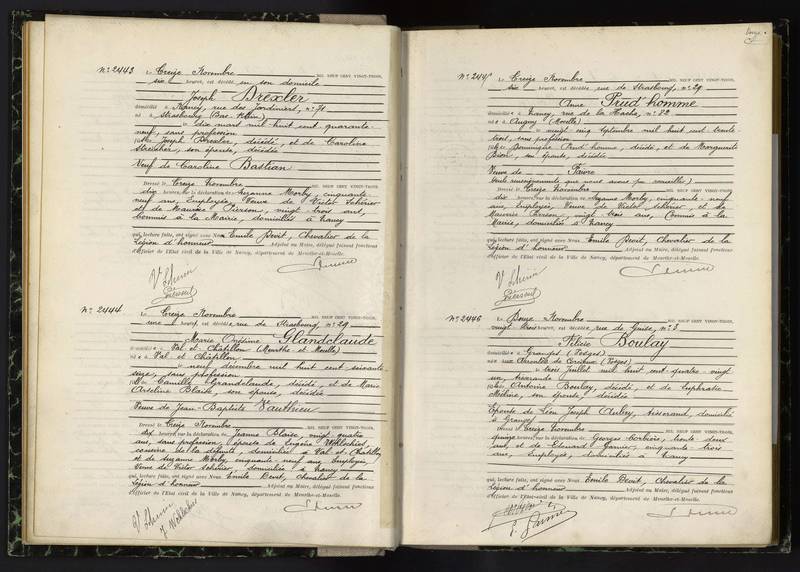 N° 2443
Le Treize Novembre MIL NEUF CENT VINGT-TROIS,
six heures, est décédé en son domicile
Joseph Drexler
domicilié à Nancy, rue des Jardiniers, n° 71
né à Strasbourg (Bas-Rhin)
dix mars mil huit cent quarante
neuf, sans profession
fils de Joseph Drexler, décédé, et de Caroline
son épouse, décédée
Veuf de Caroline Bastian
Dressé le Treize Novembre MIL NEUF CENT VINGT-TROIS,
dix heures, sur la déclaration de Suzanne Morby, cinquante
neuf ans, Employée, Veuve de Victor Schérier
et de Maurice Pierson, vingt trois ans,
Commis à la Mairie, domiciliés à Nancy
qui, lecture faite, ont signé avec Nous Emile Devit, Chevalier de la
Légion d'honneur Adjoint au Maire, délégué faisant fonctions
d'Officier de l'Etat civil de la Ville de Nancy, département de Meurthe-et-Moselle.
N° 2444
Le Treize Novembre MIL NEUF CENT VINGT-TROIS,
une heure, est décédée, rue de Strasbourg, n° 29
Marie Glandclaude
domiciliée à Val et Châtillon (Meurthe et Moselle)
née à Val et Châtillon
neuf décembre mil huit cent soixante
seize, sans profession
fille de Camille Grandclaude, décédé, et de Marie
Blaise, son épouse, décédée
Veuve de Jean-Baptiste Vauthier
Dressé le Treize Novembre MIL NEUF CENT VINGT-TROIS,
dix heures, sur la déclaration de Jeanne Blaise, vingt quatre
ans, sans profession, épouse de Eugène
cousine de la défunte, domiciliée à Val et Châtillon
et de Suzanne Morby, cinquante neuf ans, Employée,
Veuve de Victor Schérier, domiciliée à Nancy
qui, lecture faite, ont signé avec Nous Emile Devit, Chevalier de la
Légion d'honneur Adjoint au Maire, délégué faisant fonctions
d'Officier de l'Etat civil de la Ville de Nancy, département de Meurthe-et-Moselle.
Le Treize Novembre MIL NEUF CENT VINGT-TROIS,
six heures, est décédée rue de Strasbourg, n° 29
Anne Prud'homme
domiciliée à Nancy, rue de la Hache, n° 82
née à Augny (Moselle)
vingt cinq Septembre mil huit cent trente
trois, sans profession
fille de Dominique Prud'homme, décédé, et de Marguerite
son épouse, décédée
Veuve de Favre
(seuls renseignements que nous avons pu recueillir)
Dressé le Treize Novembre MIL NEUF CENT VINGT-TROIS,
dix heures, sur la déclaration de Suzanne Morby, cinquante neuf
ans, Employée, Veuve de Victor Schérier, et de
Maurice Pierson, vingt trois ans, Commis à la
Mairie, domiciliés à Nancy
qui, lecture faite, ont signé avec Nous Emile Devit, Chevalier de la
Légion d'honneur Adjoint au Maire, délégué faisant fonctions
d'Officier de l'Etat civil de la Ville de Nancy, département de Meurthe-et-Moselle.
N° 2446
Le Douze Novembre MIL NEUF CENT VINGT-TROIS,
vingt trois heures, est décédée, rue de Guise, n° 3
Boulay
domiciliée à Granges (Vosges)
née aux Arrentès de Corcieux (Vosges)
trois Juillet mil huit cent quatre vingt
un, tisserande
fille de Antoine Boulay, décédé, et de Euphrasie
son épouse, décédée
Epouse de Léon Joseph Aubry, tisserand, domicilié
à Granges
Dressé le Treize Novembre MIL NEUF CENT VINGT-TROIS,
quinze heures, sur la déclaration de Georges trente deux
ans, et de Edouard Garnier, cinquante trois
ans, Employés, domiciliés à Nancy
qui, lecture faite, ont signé avec Nous Emile Devit, Chevalier de la
Légion d'honneur Adjoint au Maire, délégué faisant fonctions
d'Officier de l'Etat civil de la Ville de Nancy, département de Meurthe-et-Moselle.